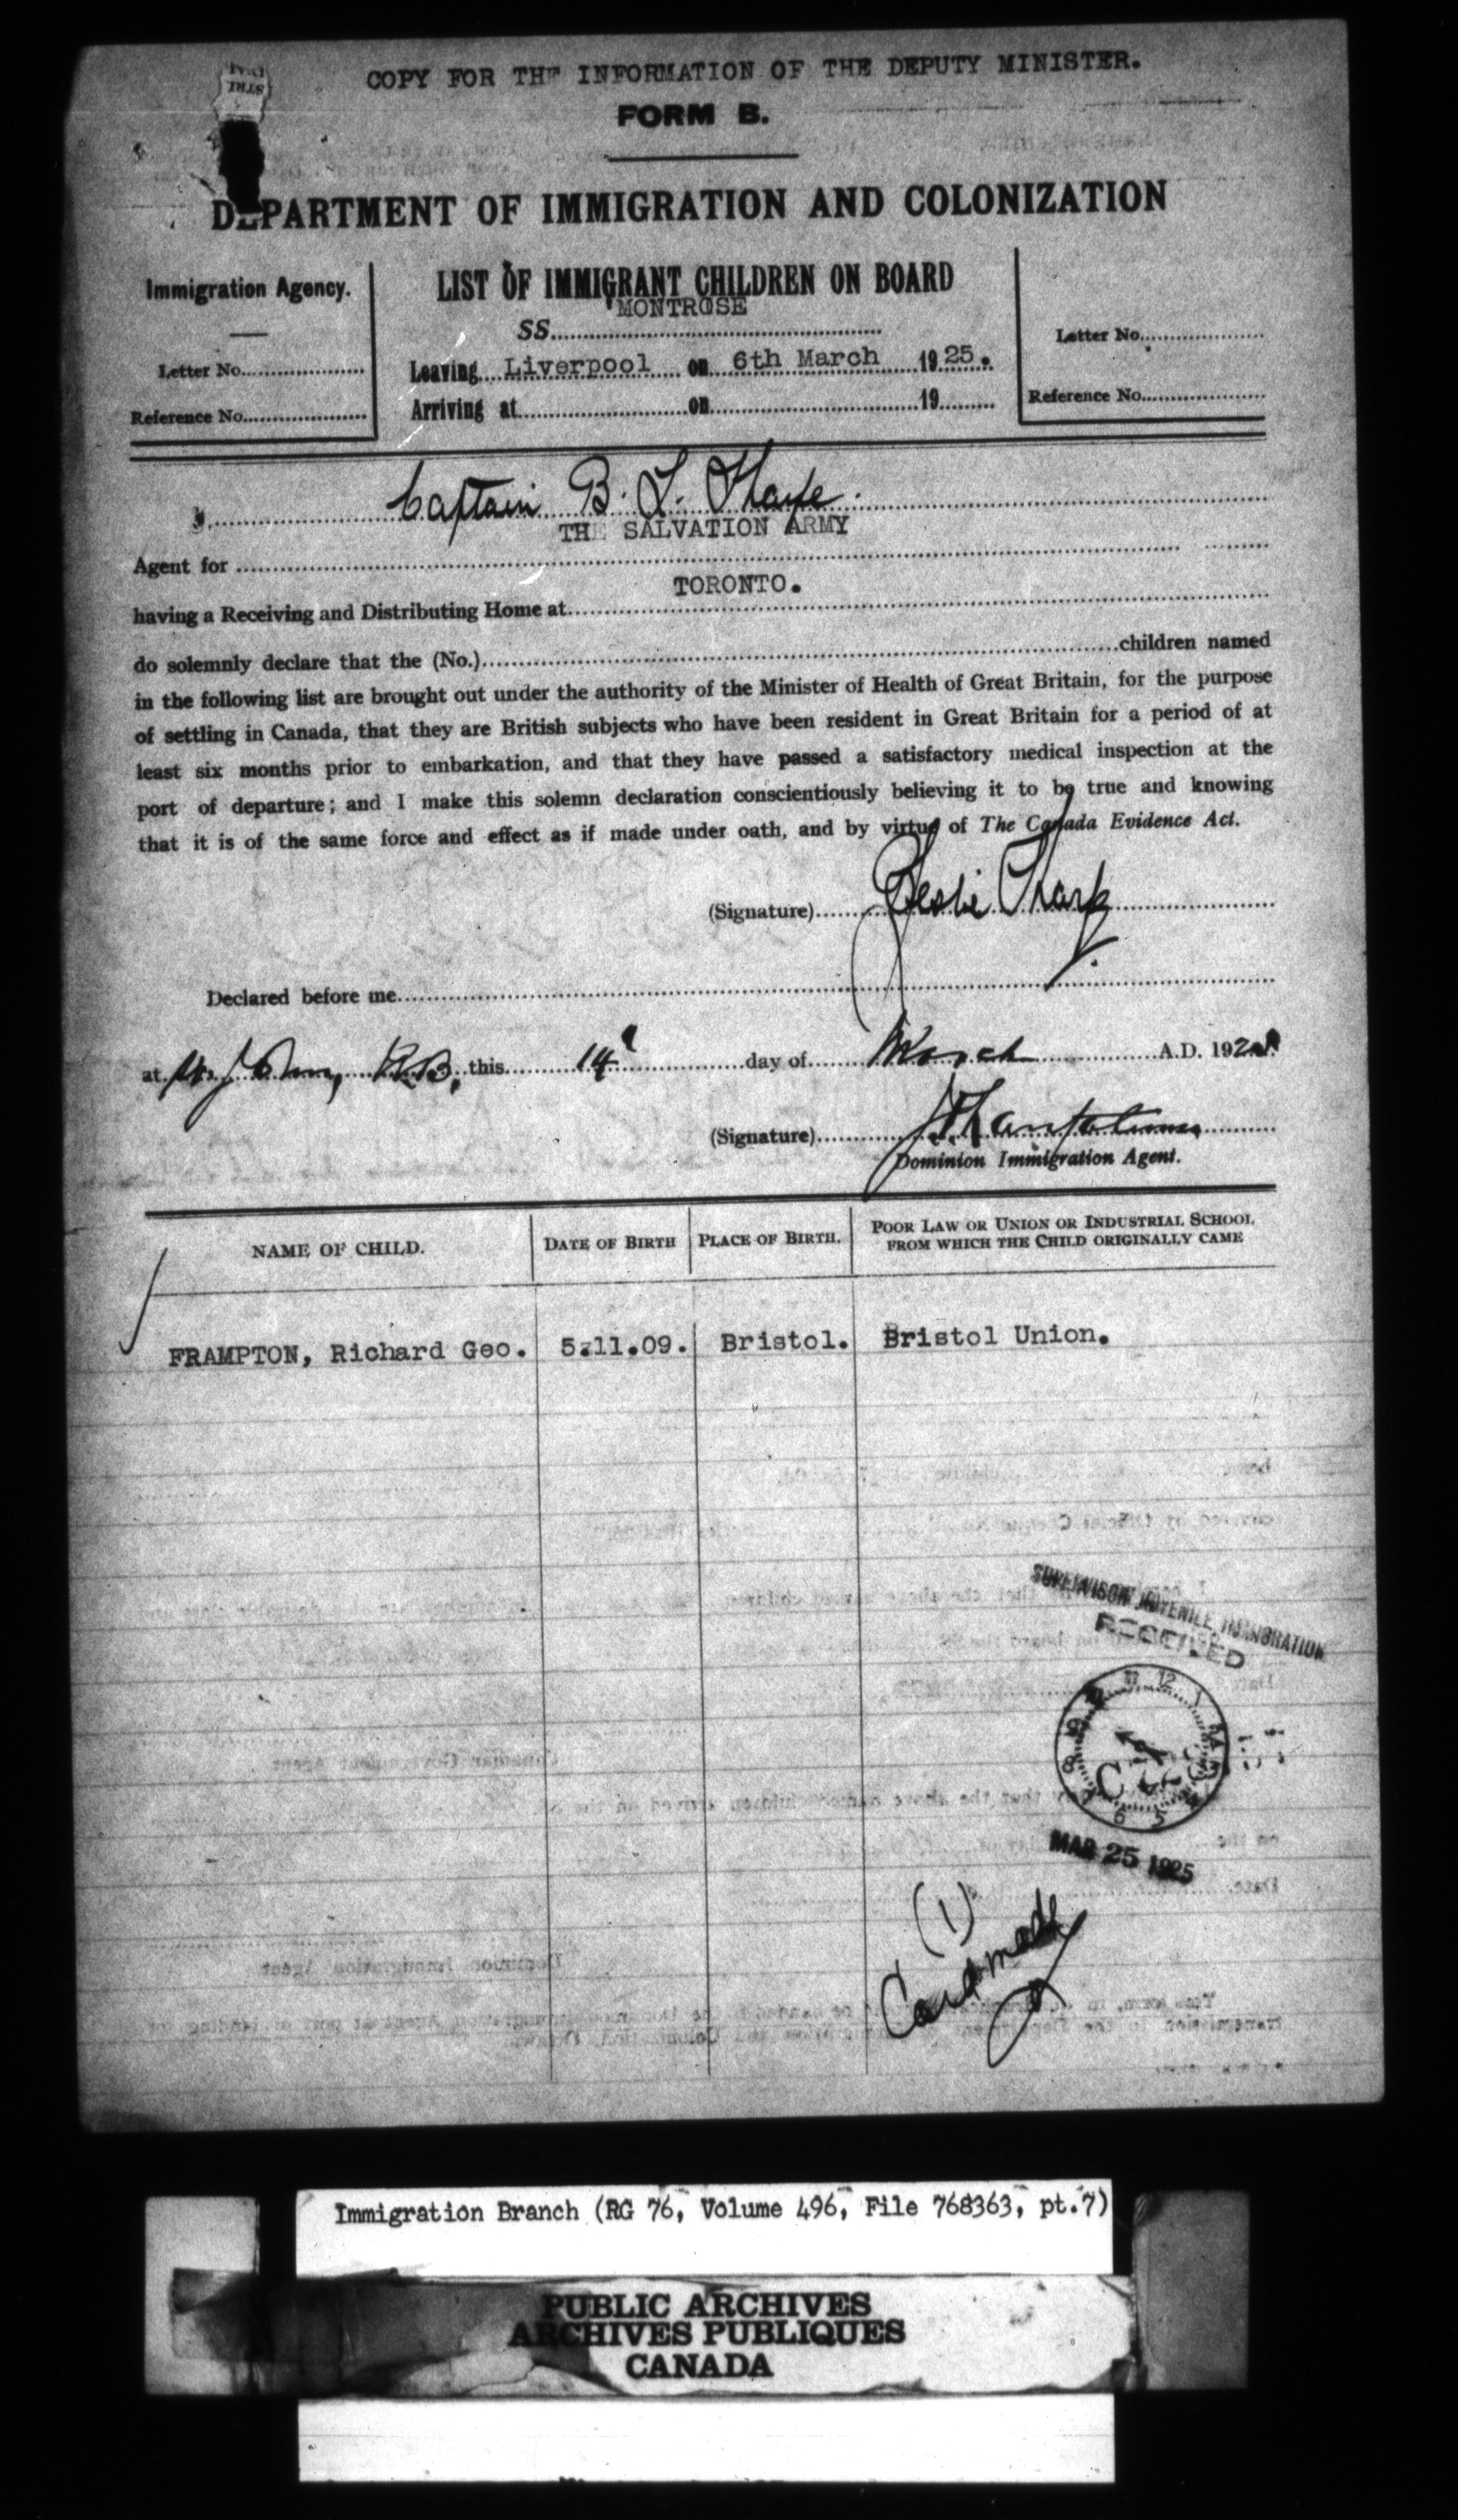 COPY FOR THE INFORMATION OF THE DEPUTY MINISTER.
FORM B.
DEPARTMENT OF IMMIGRATION AND COLONIZATION
Immigration Agency.
Letter No.
Reference No.
LIST OF IMMIGRANT CHILDREN ON BOARD
SS. MONTROSE
Leaving Liverpool on 6th March 1925.
Arriving at on 19
Letter No.
Reference No.
Captain B. L.
THE SALVATION ARMY
Agent for
TORONTO.
having a Receiving and Distributing Home at
do solemnly declare that the (No.) children named
in the following list are brought out under the authority of the Minister of Health of Great Britain, for the purpose
of settling in Canada, that they are British subjects who have been resident in Great Britain for a period of at
least six months prior to embarkation, and that they have passed a satisfactory medical inspection at the
port of departure; and I make this solemn declaration conscientiously believing it to be true and knowing
that it is of the same force and effect as if made under oath, and by virtue of The Canada Evidence Act.
(Signature) Leslie
Declared before me
at St. John, N.B, this 14 day of March A.D. 192
(Signature)
Dominion Immigration Agent.
NAME OF CHILD. DATE OF BIRTH PLACE OF BIRTH. POOR LAW OR UNION OR INDUSTRIAL SCHOOL FROM WHICH THE CHILD ORIGINALLY CAME
FRAMPTON, Richard Geo. 5.11.09. Bristol. Bristol Union.
SUPERVISOR JUVENILE IMMIGRATION
RECEIVED
MAR 25 1925
(1)
Card made
Immigration Branch (RG 76, Volume 496, File 768363, pt.7)
PUBLIC ARCHIVES
ARCHIVES PUBLIQUES
CANADA